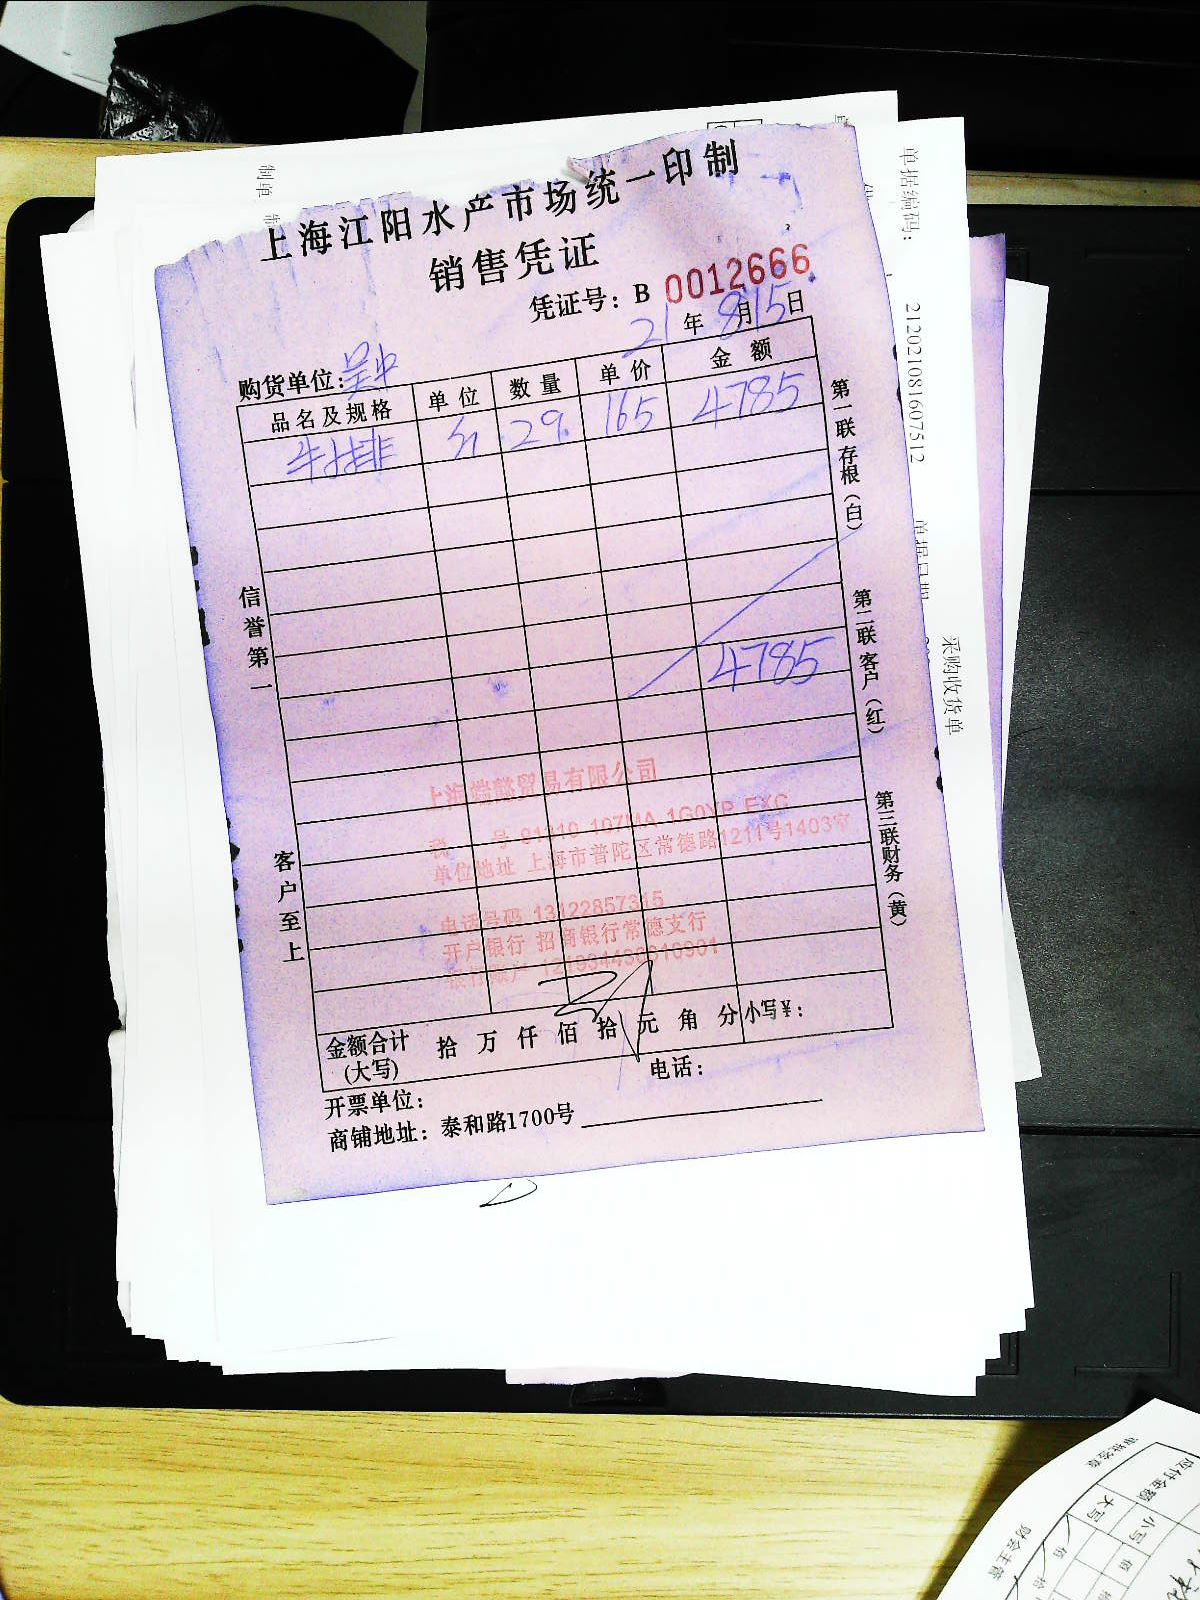 上海江阳水产市场统一印制
销售凭证
凭证号：B 0012666
21年 8月15日
购货单位：吴中
品名及规格 单位 数量 单价 金额
牛排 斤 29 165 4785
4785
信誉第一
客户至上
第一联存根（白）
第二联客户（红）
第三联财务（黄）
上海 贸易有限公司
税 号
单位地址 上海市普陀区常德路1211号1403室
电话号码 13122857315
开户银行 招商银行常德支行
银行账户
金额合计 拾 万 仟 佰 拾 元 角 分 小写¥：
(大写)
电话：
开票单位：
商铺地址：泰和路1700号
制单
单据编码： 212021081607512
单据日期
采购收货单
审核签章
应付金额
大写
小写
佰
佰
拾
财会主管